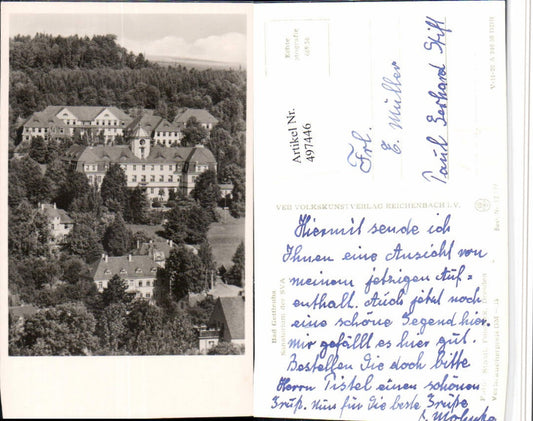 Echte
Fotografie
Artikel Nr.
497446
Frl.
E. Müller
Paul Gerhard Stift
VEB VOLKSKUNSTVERLAG REICHENBACH i. V.
Bad Gottleuba
Sanatorium der SVA
Hiermit sende ich
Ihnen eine Ansicht von
meinem jetzigen Auf-
enthalt. Auch jetzt noch
eine schöne Gegend hier.
Mir gefällt es hier gut.
Bestellen Sie doch bitte
Herrn Tistel einen schönen
Gruß. Nun für Sie beste Grüße